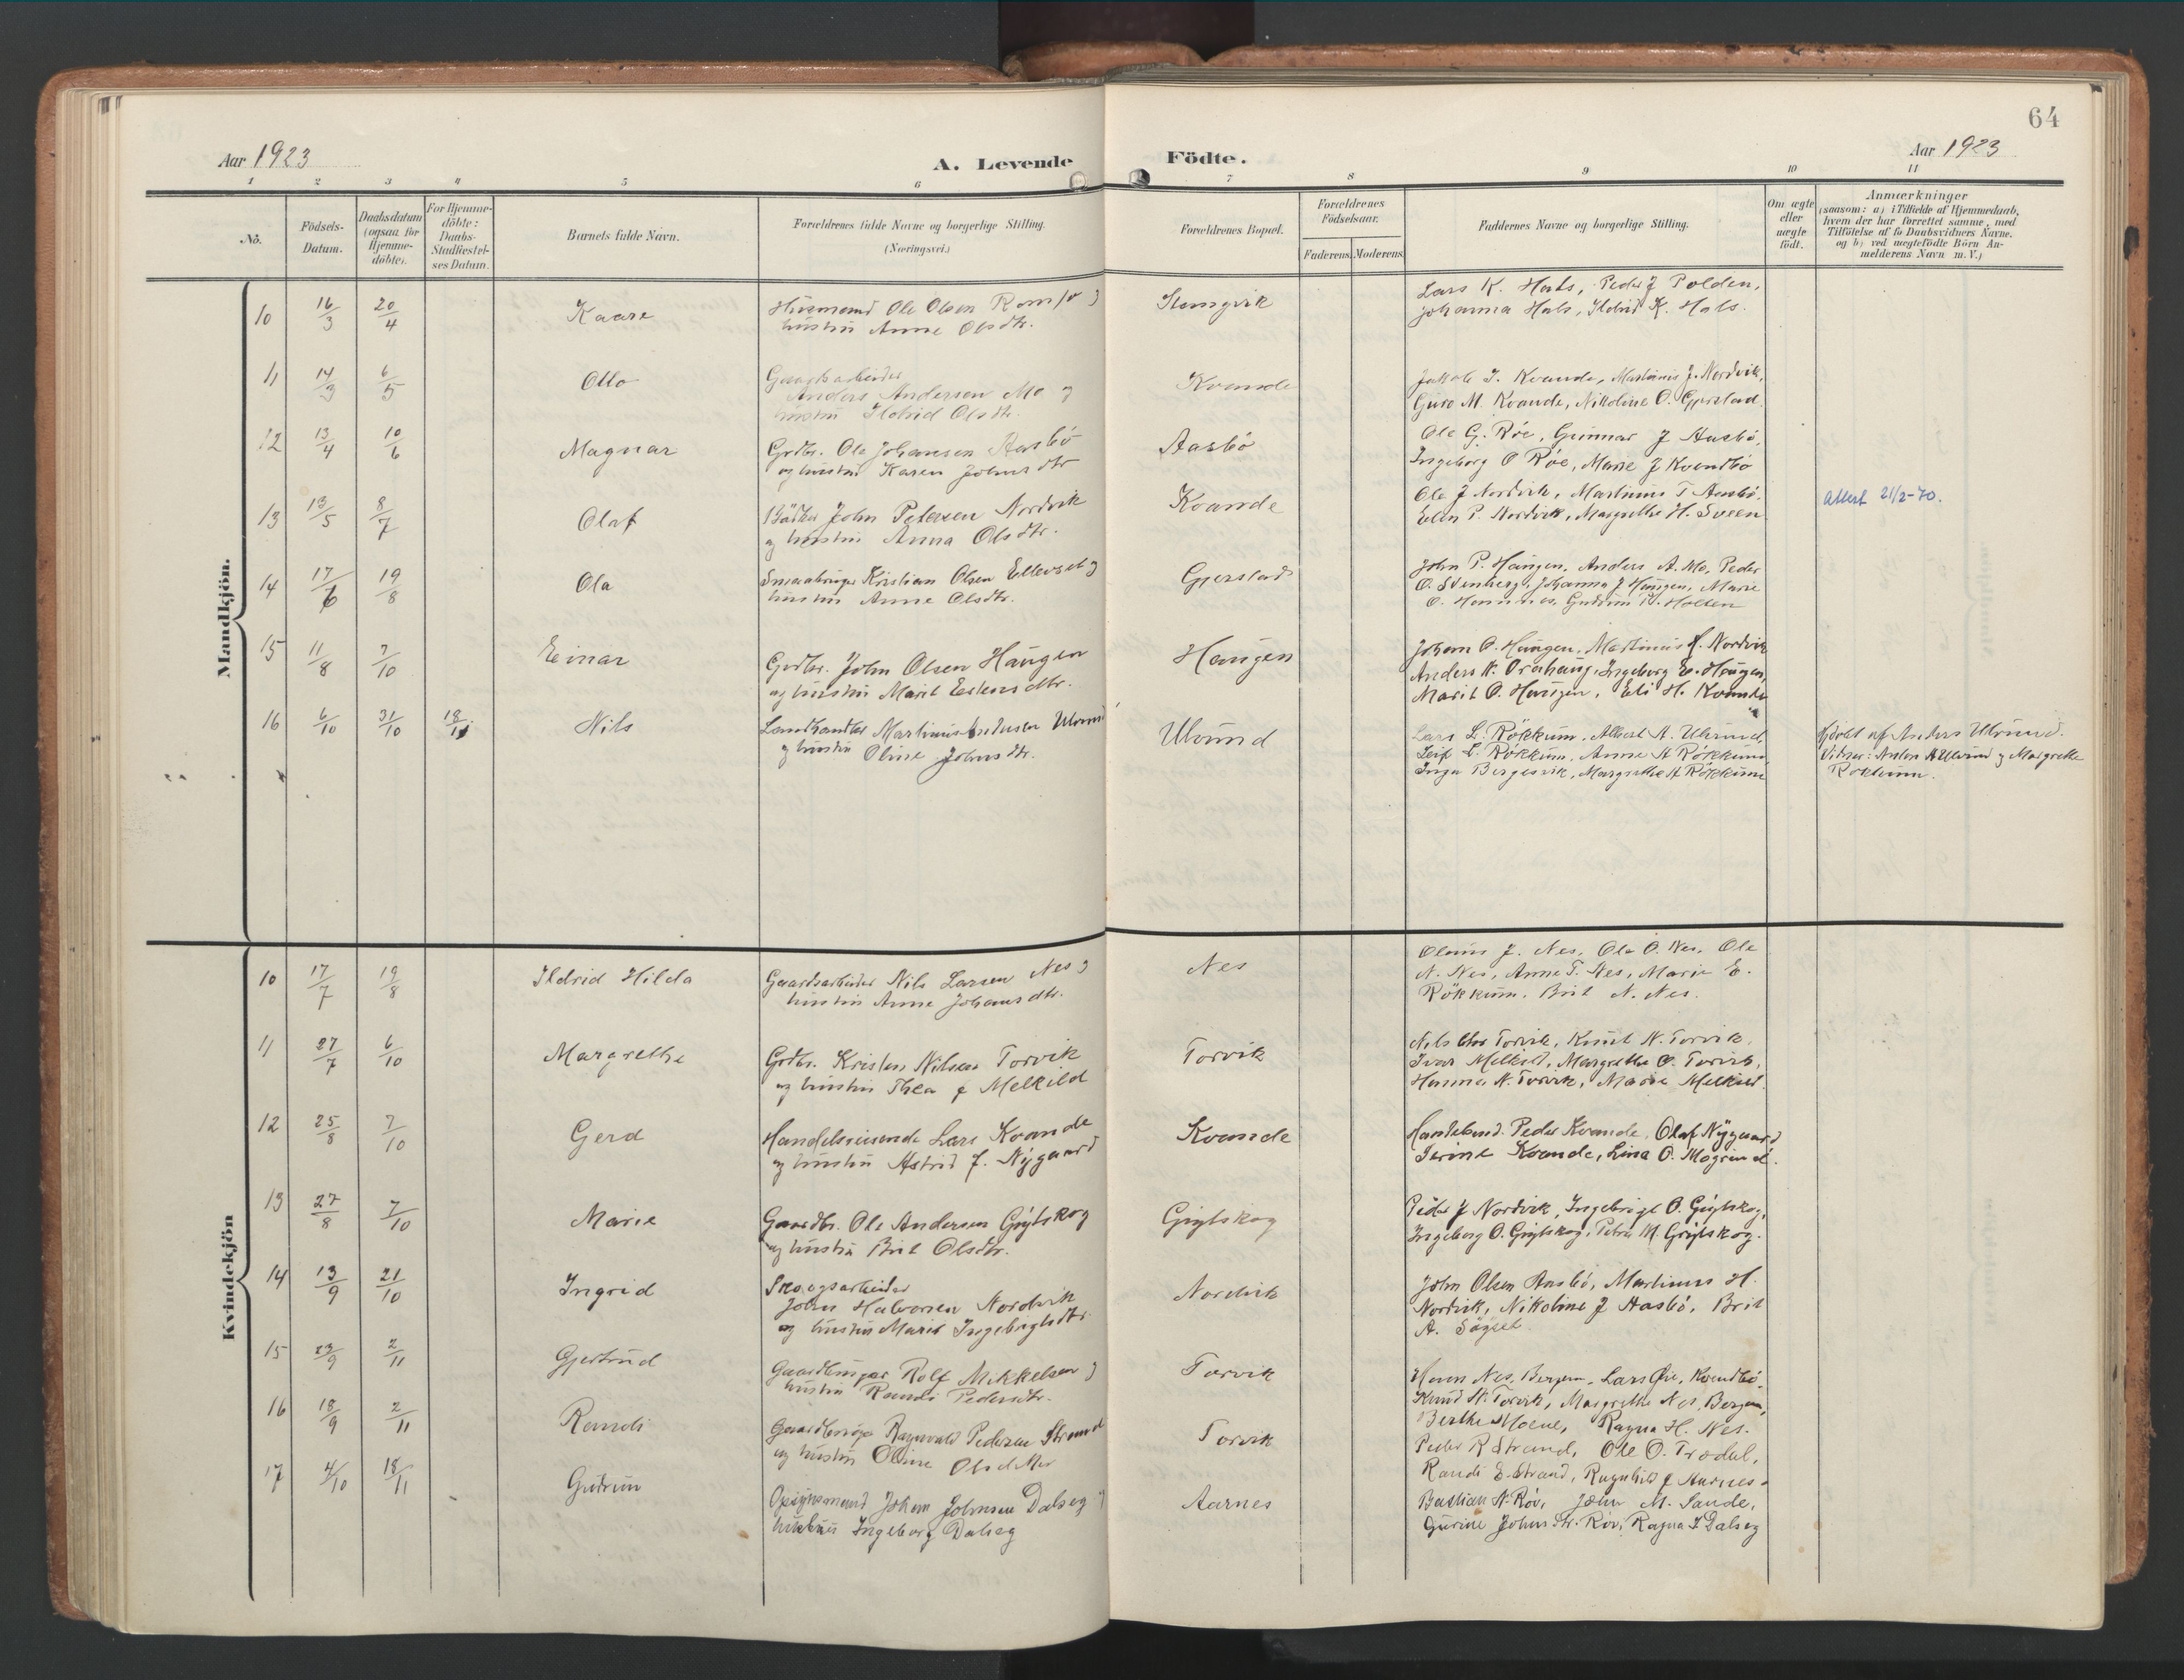 64
Aar 1923
A. Levende Födte.
Aar 1923
1 2 3 4 5 6 7 8 9 10 11
No.
Födsels-Datum.
Daabsdatum (ogsaa for Hjemme-döbte).
For Hjemme-döbte: Daabs-Stadfæstel-ses Datum.
Barnets fulde Navn.
Forældrenes fulde Navne og borgerlige Stilling.
(Næringsvei.)
Forældrenes Bopæl.
Forældrenes Födselsaar.
Faderens. Moderens.
Faddernes Navne og borgerlige Stilling.
Om ægte eller uægte født.
Anmærkninger
(saasom: a) i Tilfælde af Hjemmedaab,
hvem der har forrettet samme, med
Tilföielse af to Daabsvidners Navne,
og b) ved uægtefödte Börn An-
melderens Navn m. V.)
Mandkjön.
10 16/3 20/4 Kaare
Husmand Ole Olsen
hustru Anne Olsdtr.
Stangvik
Lars K. Hals, Peder J Polden,
Johanna Hals, Ildrid K. Hals.
11 14/3 6/5 Otto
Gaardsarbeider
Anders Andersen Mo og
hustru Ildrid Olsdtr.
Kvande
Jakob I. Kvande, Martinus J. Nordvik,
Guro M. Kvande, Nikoline O. Gjerstad.
12 13/4 10/6 Magnar
Grdbr. Ole Johansen Aasbö
og hustru Karen Johnsdtr
Aasbö
Ole G. Röe, Gunnar J Aasbö,
Ingeborg O Röe, Marie J Kvendbö
13 13/5 8/7 Olaf
Bådker John Petersen Nordvik
og hustru Anna Olsdtr.
Kvande
Ole J Nordvik, Martinus T Aasbö.
Elen P. Nordvik, Margrethe H. Sveen
Attest 21/2-70.
14 17/6 19/8 Ola
Smaabruger Kristian Olsen Ellevset og
hustru Anne Olsdtr.
Gjerstad
John P. Haugen, Anders A. Mo, Peder
O. Svinberg, Johanna J Haugen, Marie
O. Hamnes, Gudrun N. Holten
15 11/8 7/10 Einar
Grdbr. John Olsen Haugen
og hustru Marit Estensdtr.
Haugen
Johan O. Haugen, Martinus H. Nordvik
Anders K. Orahaug, Ingeborg E. Haugen,
Marit O. Haugen, Eli H. Kvande
16 6/10 31/10 18/11 Nils
Landhandler Martinus Andersen Ulvund
og hustru Oline Johnsdtr.
Ulvund
Lars L. Rökkum, Albert A. Ulvund,
Leif L. Rökkum, Anne A Rökkum,
Inga Bergsvik, Margrethe A Rökkum
hjdøbt af Anders Ulvund.
Vidner: Anders A Ulvund og Margrethe
Rökkum.
Kvindekjön
10 17/7 19/8 Ildrid Hilda
Gaardsarbeider Nils Larsen Nes og
hustru Anne Johansdtr.
Nes
Olaus J. Nes, Ola O. Nes, Ole
N. Nes, Anne T. Nes, Marie E.
Rökkum. Brit N. Nes.
11 27/7 6/10 Margrethe
Grdbr. Kristen Nilsen Torvik
og hustru Thea J Melkild
Torvik
Nils Chr Torvik, Knut N. Torvik,
Ivar Melkild, Margrethe O. Torvik,
Hanna N. Torvik, Marie Melkild.
12 25/8 7/10 Gerd
Handelsreisende Lars Kvande
og hustru Astrid J. Nygaard
Kvande
Handelsmd. Peder Kvande, Olaf Nygaard
Serine Kvande, Lina O. Mogrund.
13 27/8 7/10 Marie
Gaardbr. Ole Andersen Griytskog
og hustru Brit Olsdtr.
Griytskog
Peder J Nordvik, Ingebrigt O. Griytskog,
Ingeborg O. Griytskog, Petra M. Griytskog.
14 13/9 21/10 Ingrid
Skogsarbeider
John Halvorsen Nordvik
og hustru Marit Ingebrigtsdtr.
Nordvik
John Olsen Aasbö, Martinus H.
Nordvik, Nikoline J Aasbö, Brit
A. Sögset
15 23/9 2/11 Gjertrud
Gaardbruger Rolf Mikkelsen og
hustru Randi Pedersdtr.
Torvik
Hans Nes, Bergen, Lars Öie, Kvendbö,
Knud N. Torvik, Margrethe Nes, Bergen,
Berthe Moene, Ragna H. Nes.
16 18/9 2/11 Randi
Gaardbruger Ragnvald Pedersen Strand
og hustru Oline Olsdatter
Torvik
Peder R Strand, Ole O. Trædal,
Randi E. Strand, Ragnhild J Aarnes.
17 4/10 18/11 Gudrun
Opsynsmand Johan Johnsen Dalseg og
hustru Ingeborg Dalseg
Aarnes
Bastian N. Röv, John M. Sande,
Gurine Johnsdtr. Röv, Ragna I Dalseg